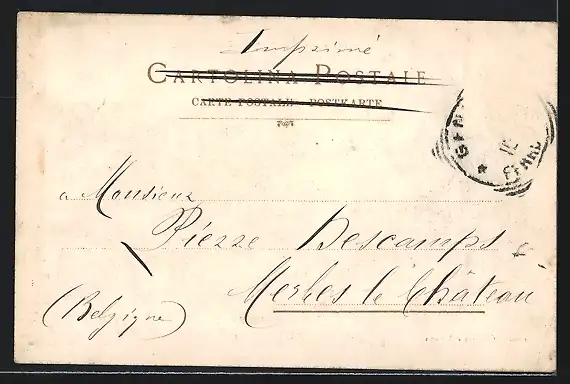 Imprimé
CARTOLINA POSTALE
CARTE POSTALE - POSTKARTE
a Monsieur
Pierre Descamps
Merbes le Château
(Belgique)